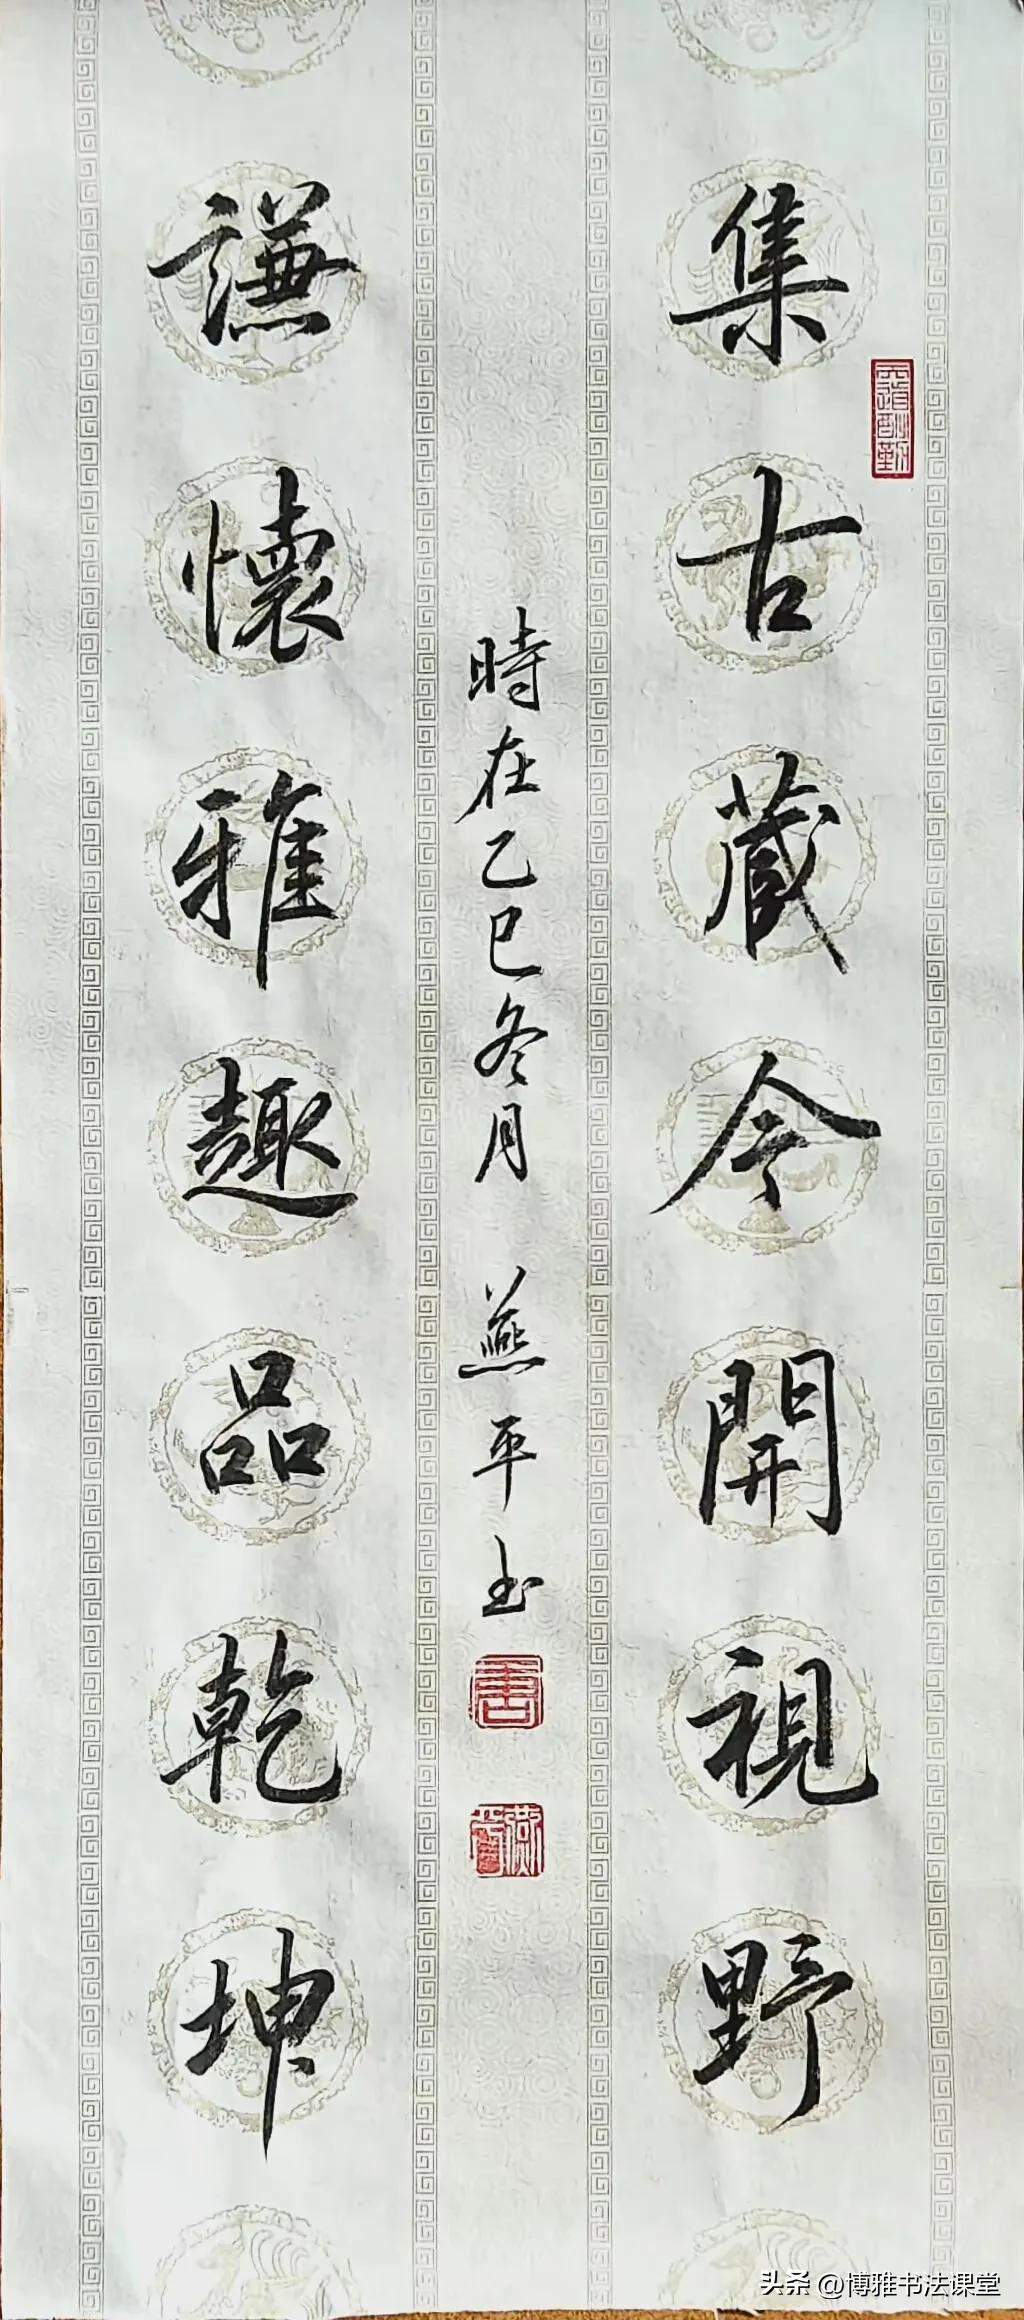 集古藏今開視野
天道酬勤
謙懷雅趣品乾坤
時在乙巳冬月 燕平书
头条 @博雅书法课堂